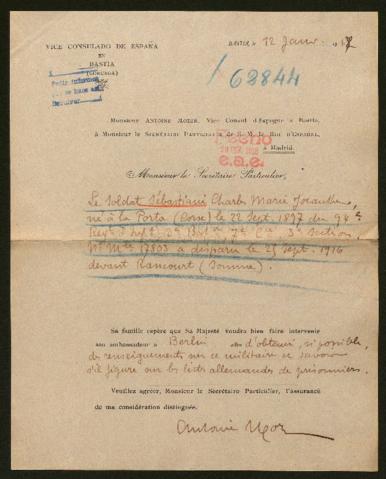 VICE CONSULADO DE ESPAÑA
EN
BASTIA
(CORCEGA)
BASTIA, 12 Janv. 1917
62844
Monsieur ANTOINE MOZER, Vice Consul d'Espagne à Bastia,
à Monsieur le SECRÉTAIRE PARTICULIER de S. M. le Roi d'ESPAGNE,
à Madrid.
Fecho
e.a.e.
Monsieur le Secrétaire Particulier,
Le soldat Sébastiani Charles Marie
né à la Porta (Corse) le 22 Sept. 1897 du 94e
Regt d'Infie 3e Bat 7e Cie 3e section
No Mle 17803 a disparu le 25 Sept. 1916
devant Rancourt (Somme).
Sa famille espère que Sa Majesté voudra bien faire intervenir
son ambassadeur à Berlin afin d'obtenir, si possible,
des renseignements sur ce militaire et savoir
s'il figure sur les listes allemandes de prisonniers.
Veuillez agréer, Monsieur le Secrétaire Particulier, l'assurance
de ma considération distinguée.
Antoine